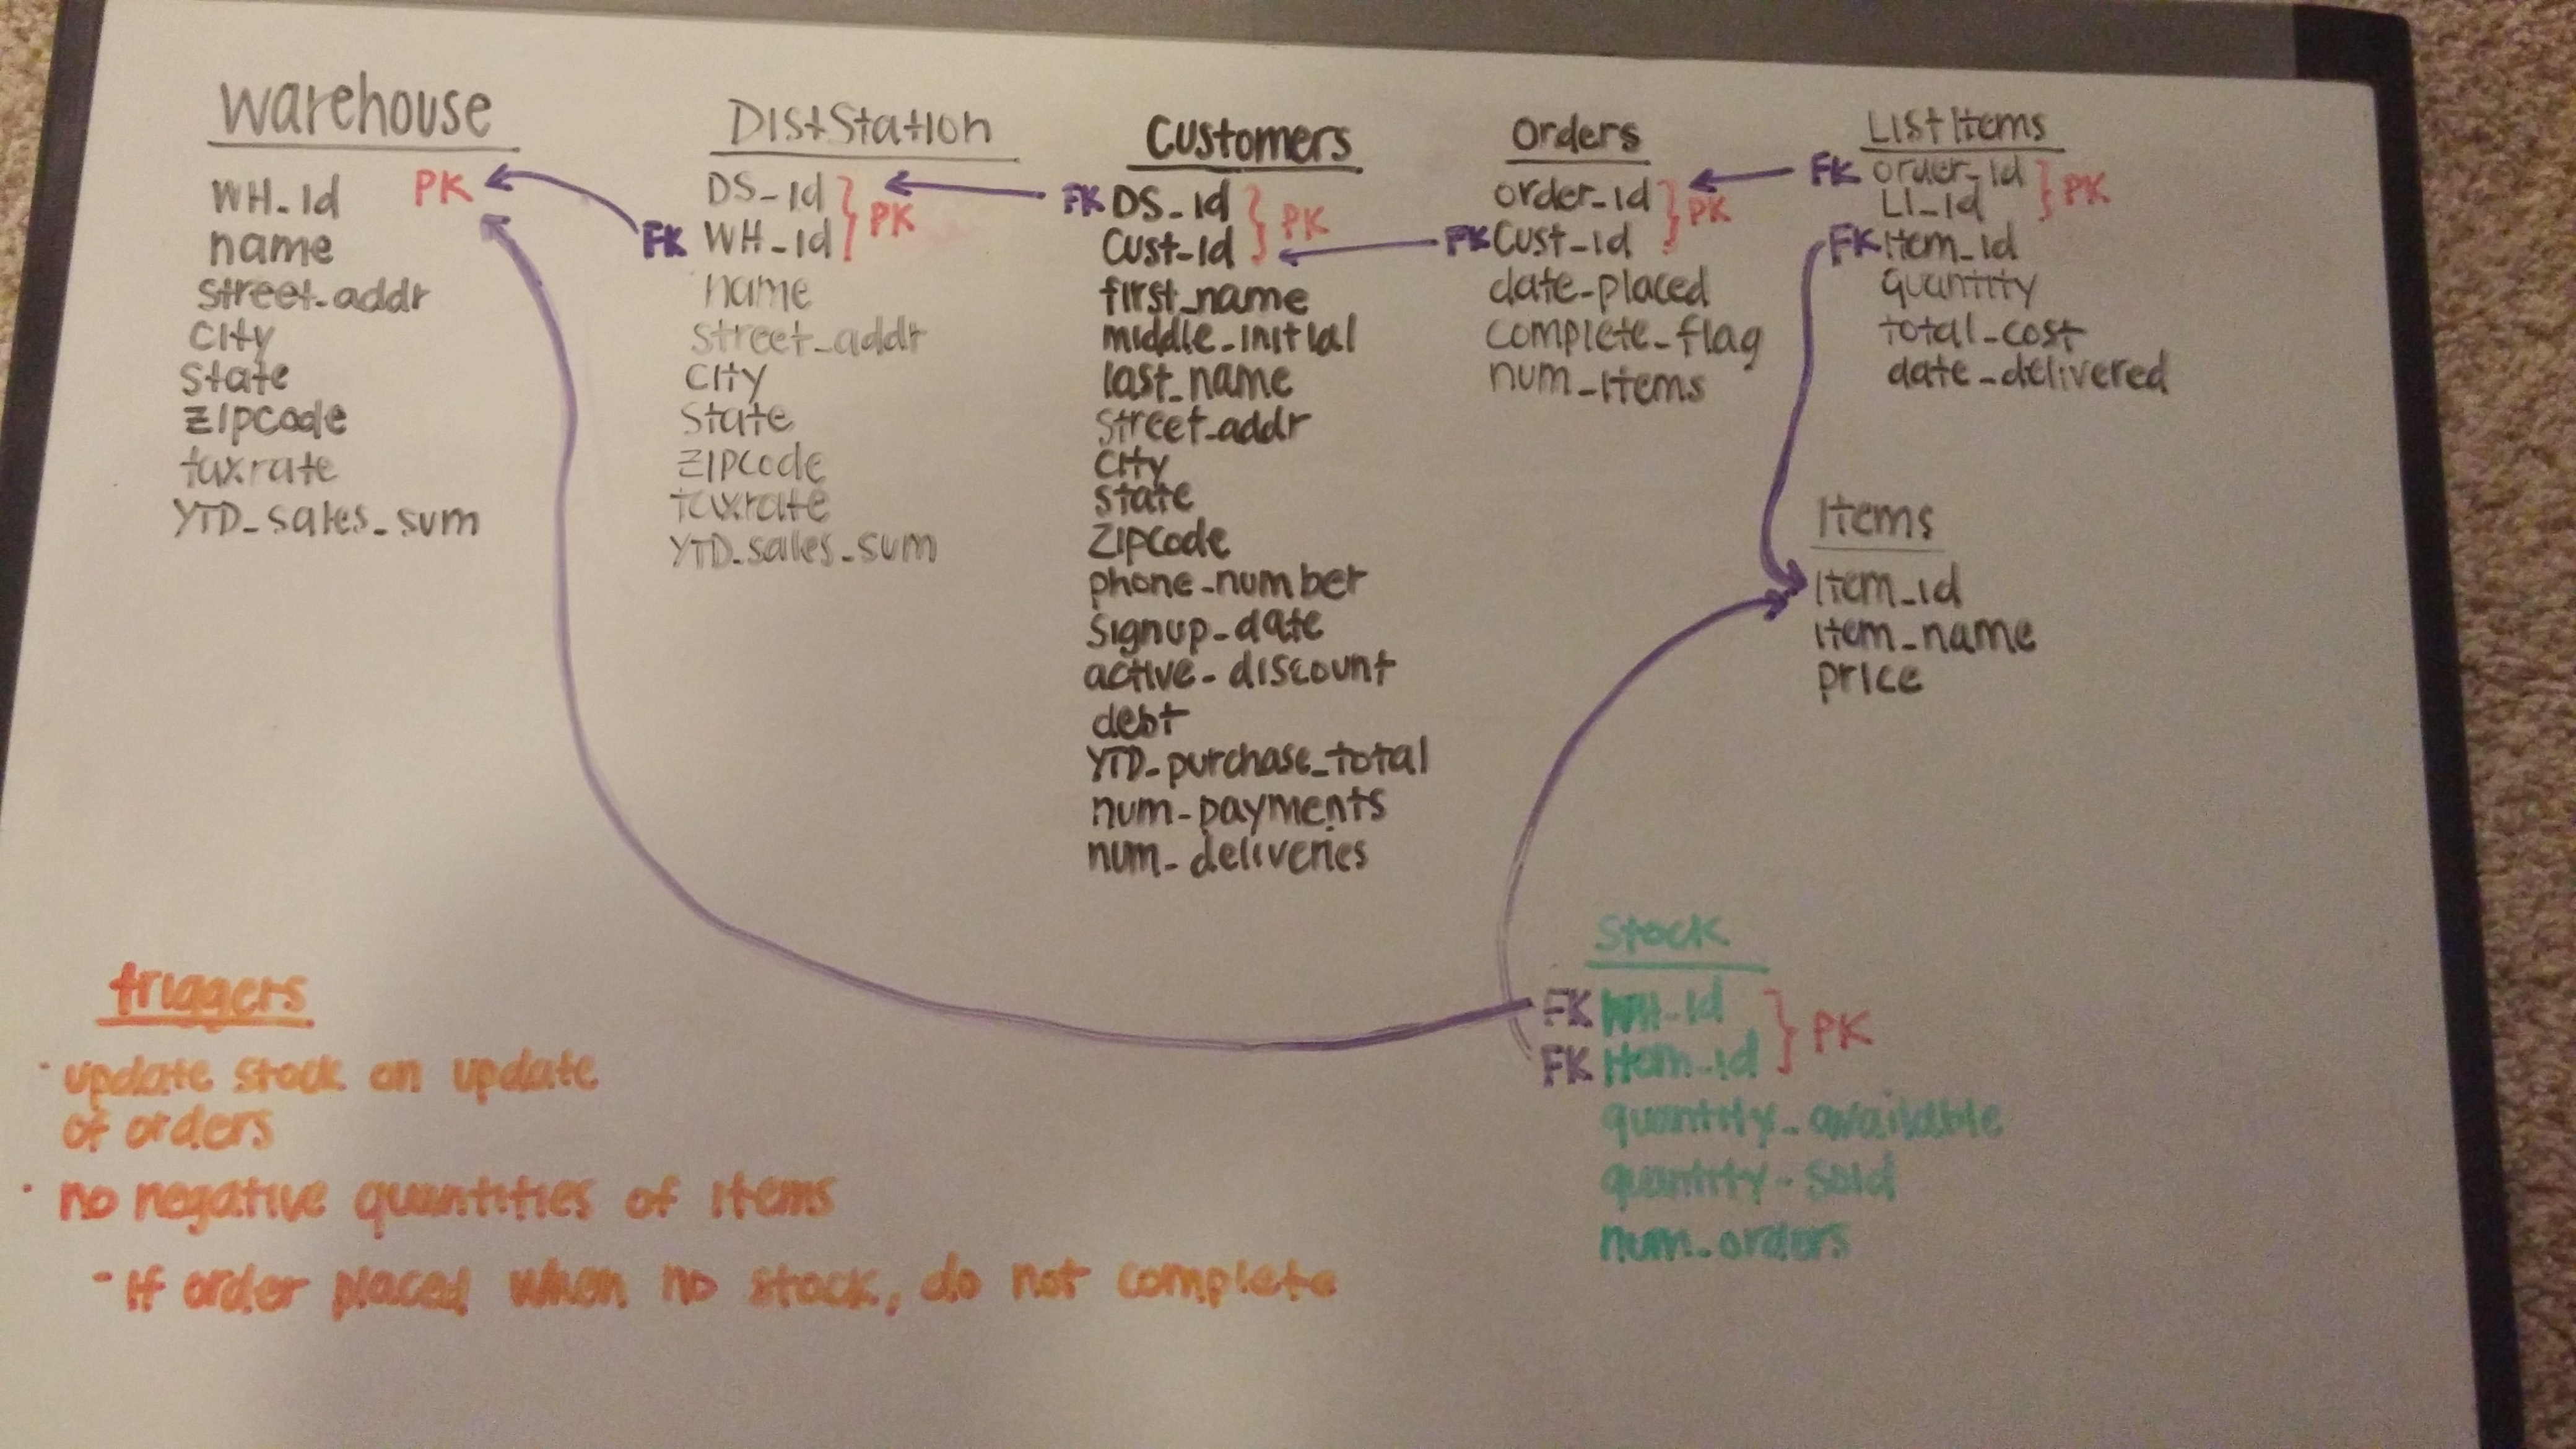 Warehouse
WH_id PK
name
street_addr
city
state
zipcode
taxrate
YTD_sales_sum
DistStation
DS_id
FK WH_id
PK
name
street_addr
city
state
zipcode
taxrate
YTD_sales_sum
Customers
FK DS_id
Cust_id
PK
first_name
middle_initial
last_name
street_addr
city
state
zipcode
phone_number
signup_date
active_discount
debt
YTD_purchase_total
num_payments
num_deliveries
Orders
order_id
FK Cust_id
PK
date_placed
complete_flag
num_items
ListItems
FK order_id
LI_id
PK
FK item_id
quantity
total_cost
date_delivered
Items
item_id
item_name
price
Stock
FK WH_id
FK item_id
PK
quantity_available
quantity_sold
num_orders
triggers
· update stock on update
of orders
· no negative quantities of items
- if order placed when no stock, do not complete